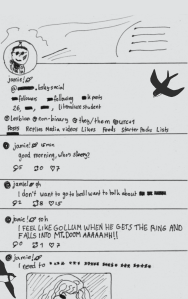 jamie!
.bsky.social
followers following posts
26, literature student
lesbian non-binary they/them
Posts Replies Media Videos Likes Feeds Starter Packs Lists
jamie! 15min
good morning, who's sleepy?
jamie! 9h
i don't want to go to hell i want to talk about
jamie! 22h
I FEEL LIKE GOLLUM WHEN HE GETS THE RING AND
FALLS INTO MT. DOOM AAAAAHH!!
jamie!
I need to